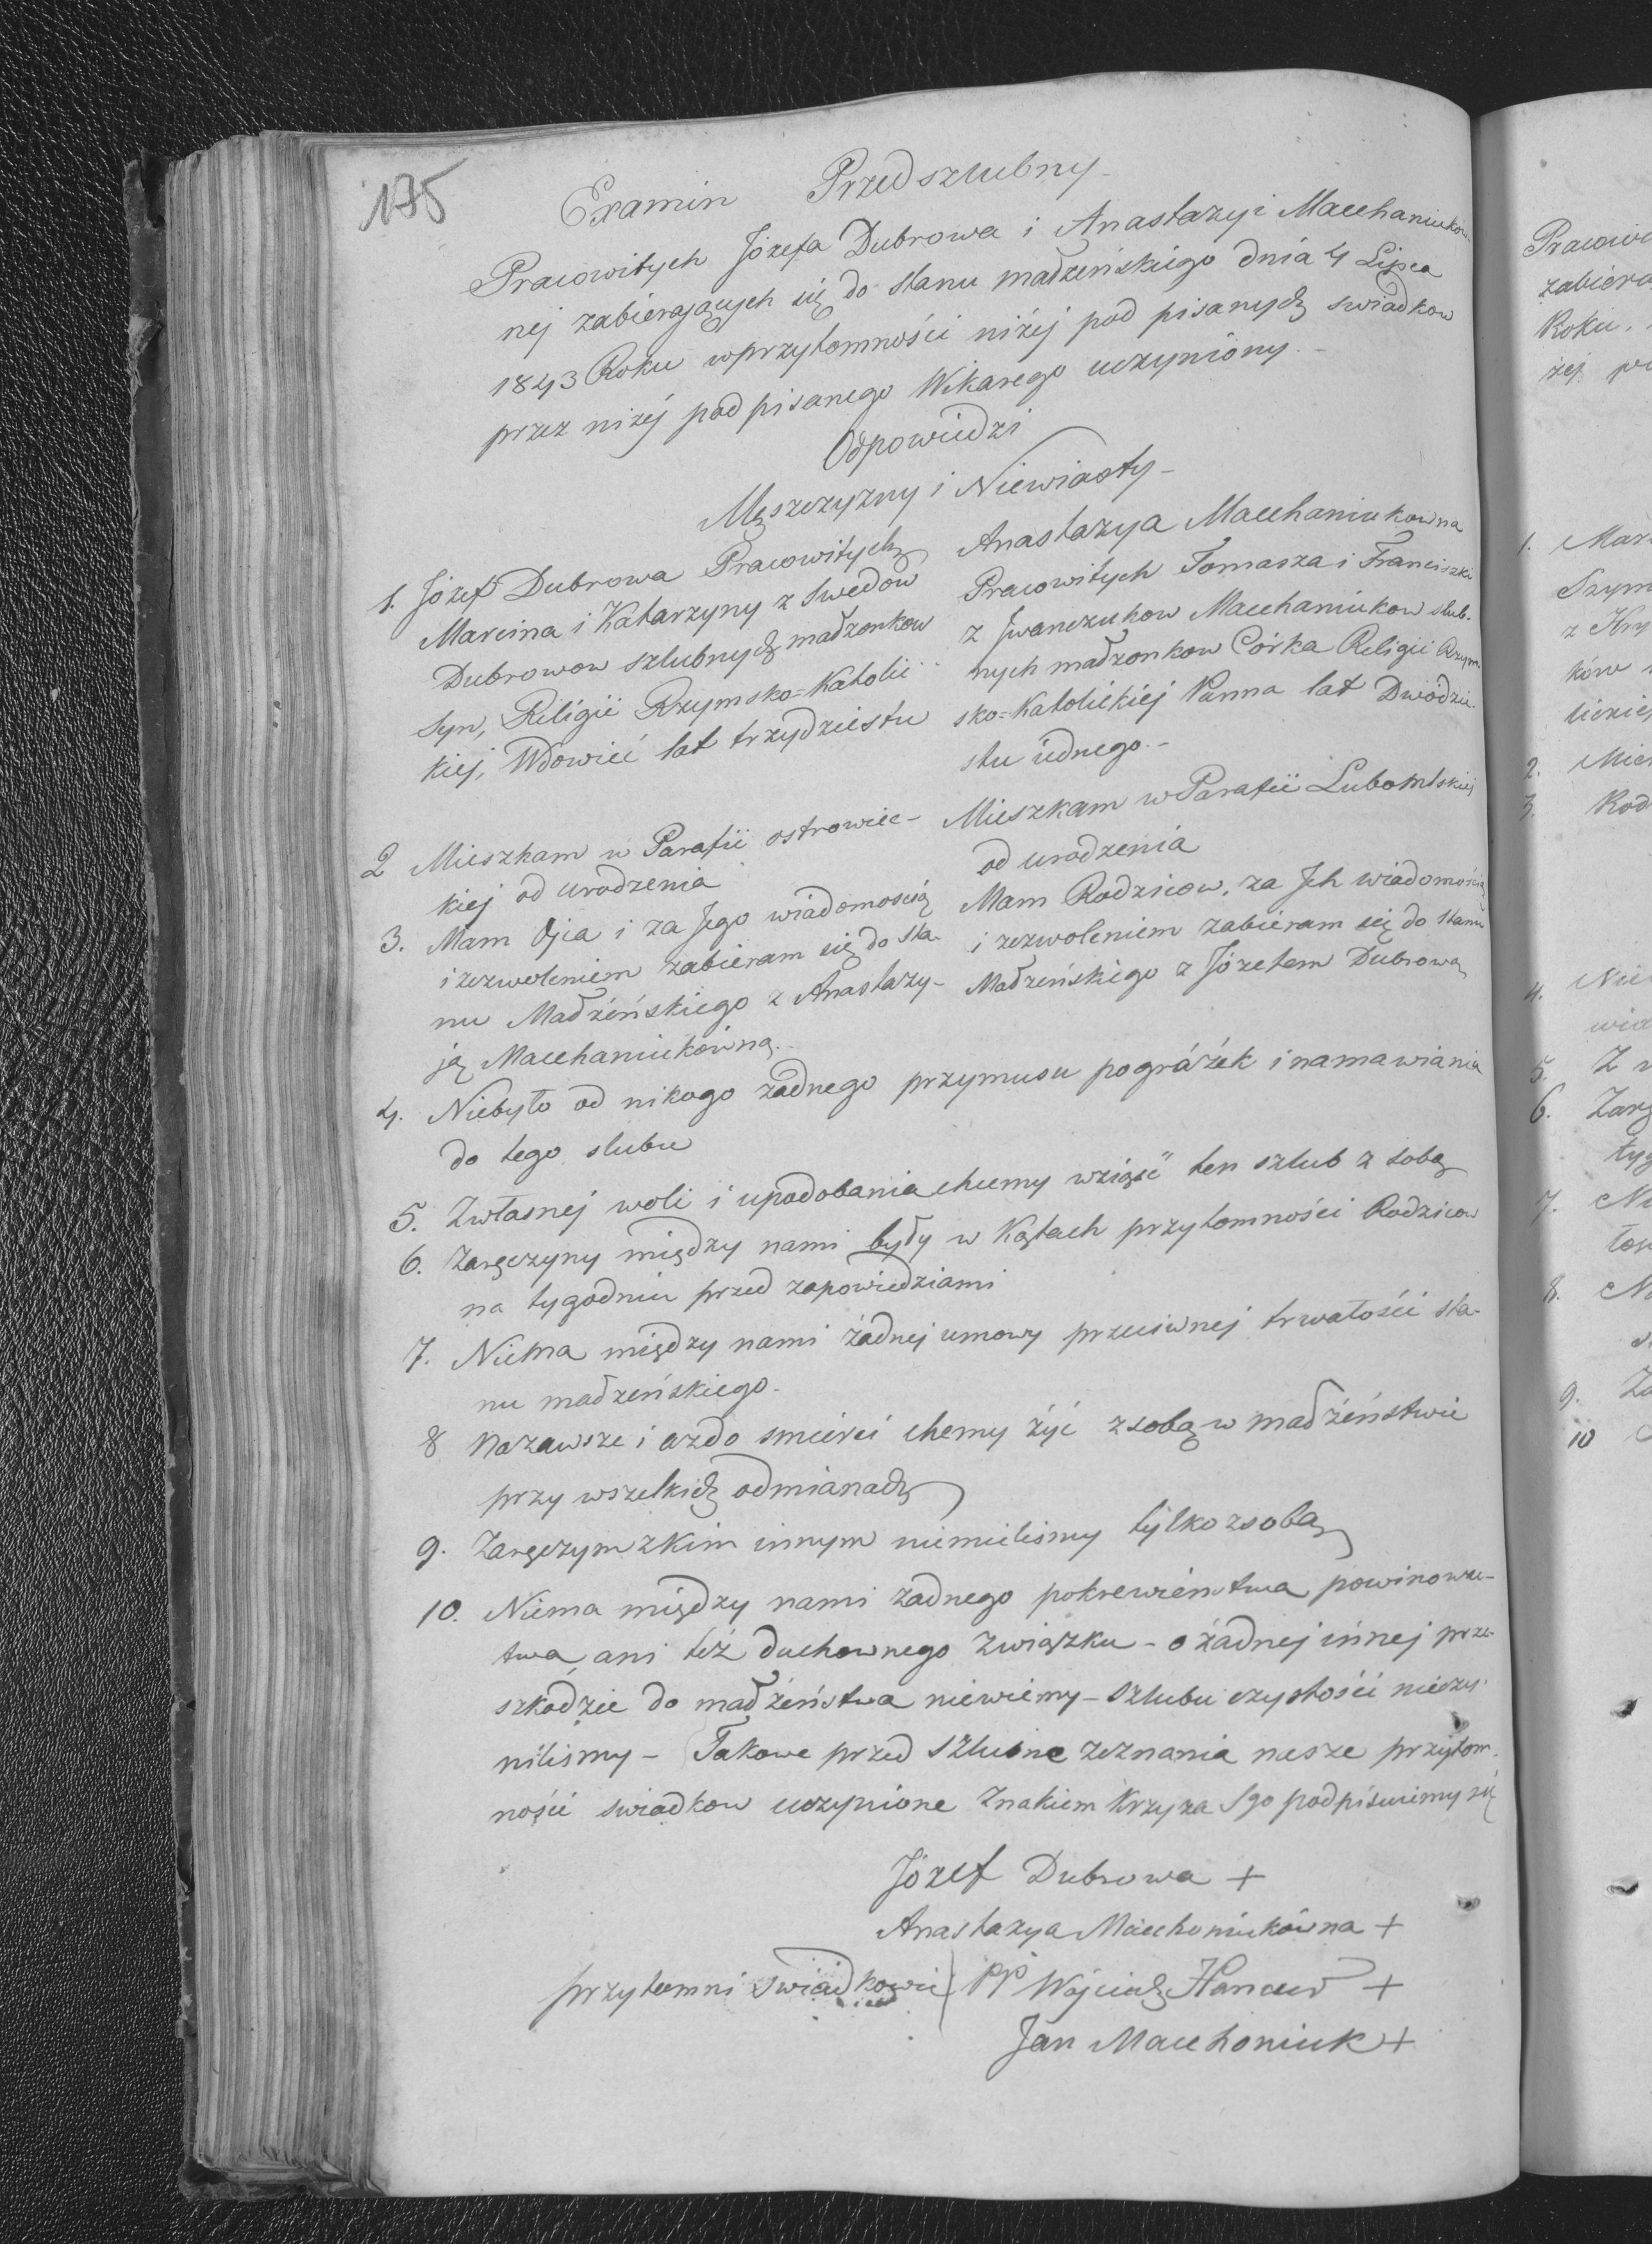 135
Examin Przedszlubny
Pracowitych Józefa Dubrowa i Anastazyi Macchaniukow-
nej zabierających się do stanu madżeńskiego dnia 4 Lipca
1843 Roku wprzytomności niżej pod pisanych swiadkow
przez niżéj podpisanego Wikarego uczyniony.-
Odpowiedzi
Męszczyzny i Niewiasty-
1. Józef Dubrowa Pracowitych
Marcina i Katarzyny z Swedow
Dubrowow szlubnych madżonkow
Syn, Religii Rzymsko=Katolic
kiej, Wdowiec lat trzydziestu
Anastazya Macchaniukowna
Pracowitych Tomasza i Franciszki
z Iwanczukow Macchaniukow slub-
nych madżonkow Córka Religii Rzym-
sko=Katolickiéj Panna lat Dwódzie-
stu iednego.-
2 Mieszkam w Parafii ostrowiec-
kiej od urodzenia
Mieszkam w Parafii Lubomlskiej
od urodzenia
3. Mam Ojca i za Jego wiadomością
i zezwoleniem zabieram się do sta-
nu Madżeńskiego z Anastazy-
ją Macchaniukówną.
Mam Rodzicow, za Ich wiadomością
i zezwoleniem zabieram się do stanu
Madżeńskiego z Józefem Dubrową
4. Niebyło od nikogo żadnego przymusu pogróżek i namawiania
do tego slubu
5. Zwłasnej woli i upodobania chcemy wziąść ten szlub z sobą
6. Zaręczyny między nami były w Kątach przytomności Rodzicow
na tygodniu przed zapowiedziami
7. Niema między nami żadnej umowy przeciwnej trwałości sta-
nu madżeńskiego.
8 Nazawsze i azdo smierci chemy żyć zsobą w madżeństwie
przy wszelkich odmianach
9. Zaręczyn zkim innym niemielismy tylko zsobą
10. Niema między nami żadnego pokrewieństwa powinowac-
twa, ani też duchownego związku - o żadnej innej prze-
szkodzie do madżeństwa niewiemy - Szlubu czystości nieczy-
nilismy - Takowe przed szlubne zeznania nasze przytom-
ności swiadkow uczynione Znakiem Krzyża Sgo podpisuiemy się
Józef Dubrowa +
Anastazya Macchoniukówna +
przytomni swiadkowie pp Wojciech +
Jan Macchoniuk +